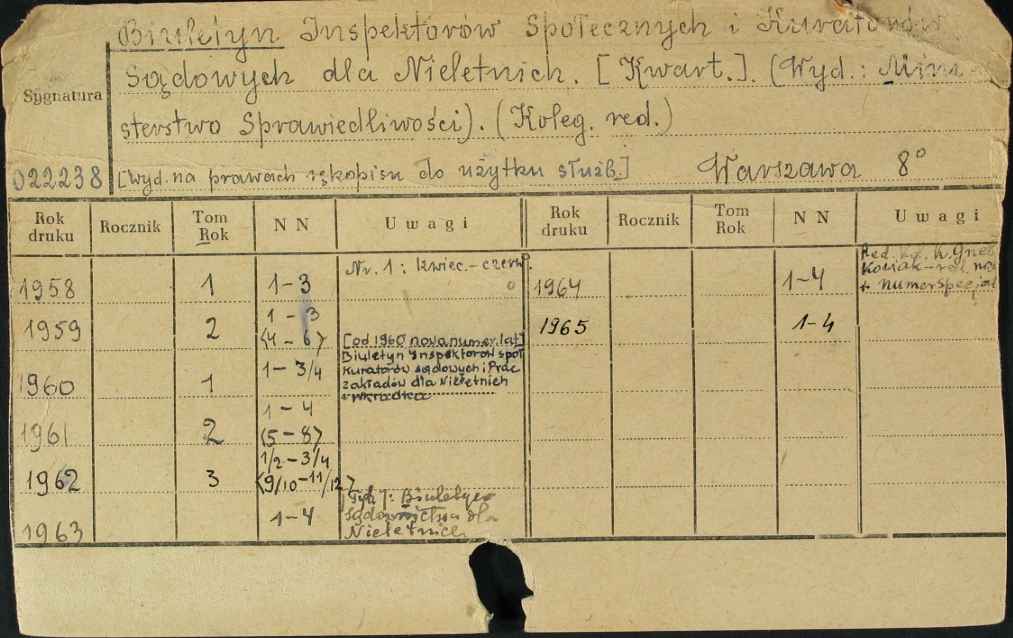 Biuletyn Inspektorów Społecznych i Kuratorów
Sądowych dla Nieletnich. [Kwart.]. (Wyd.: Mini-
Sygnatura
sterstwo Sprawiedliwości). (Koleg. red.)
022238 [Wyd. na prawach rękopisu do użytku służb.] Warszawa 8°
Rok druku Rocznik Tom Rok NN Uwagi Rok druku Rocznik Tom Rok NN Uwagi
1958 1 1-3 Nr. 1: kwiec.-czerw. 1964 1-4 Red.
+ numer specjal
1959 2 1-3 1965 1-4
<4-6>
[od 1960 nowa numer. lat]
Biuletyn Inspektorów społ
kuratorów sądowych i Prac
zakładów dla Nieletnich
1960 1 1-3/4
1961 2 1-4
<5-8>
1962 3 1/2-3/4
<9/10-11/12>
1963 1-4 Tyt.: Biuletyn
sądownictwa dla
Nieletnich